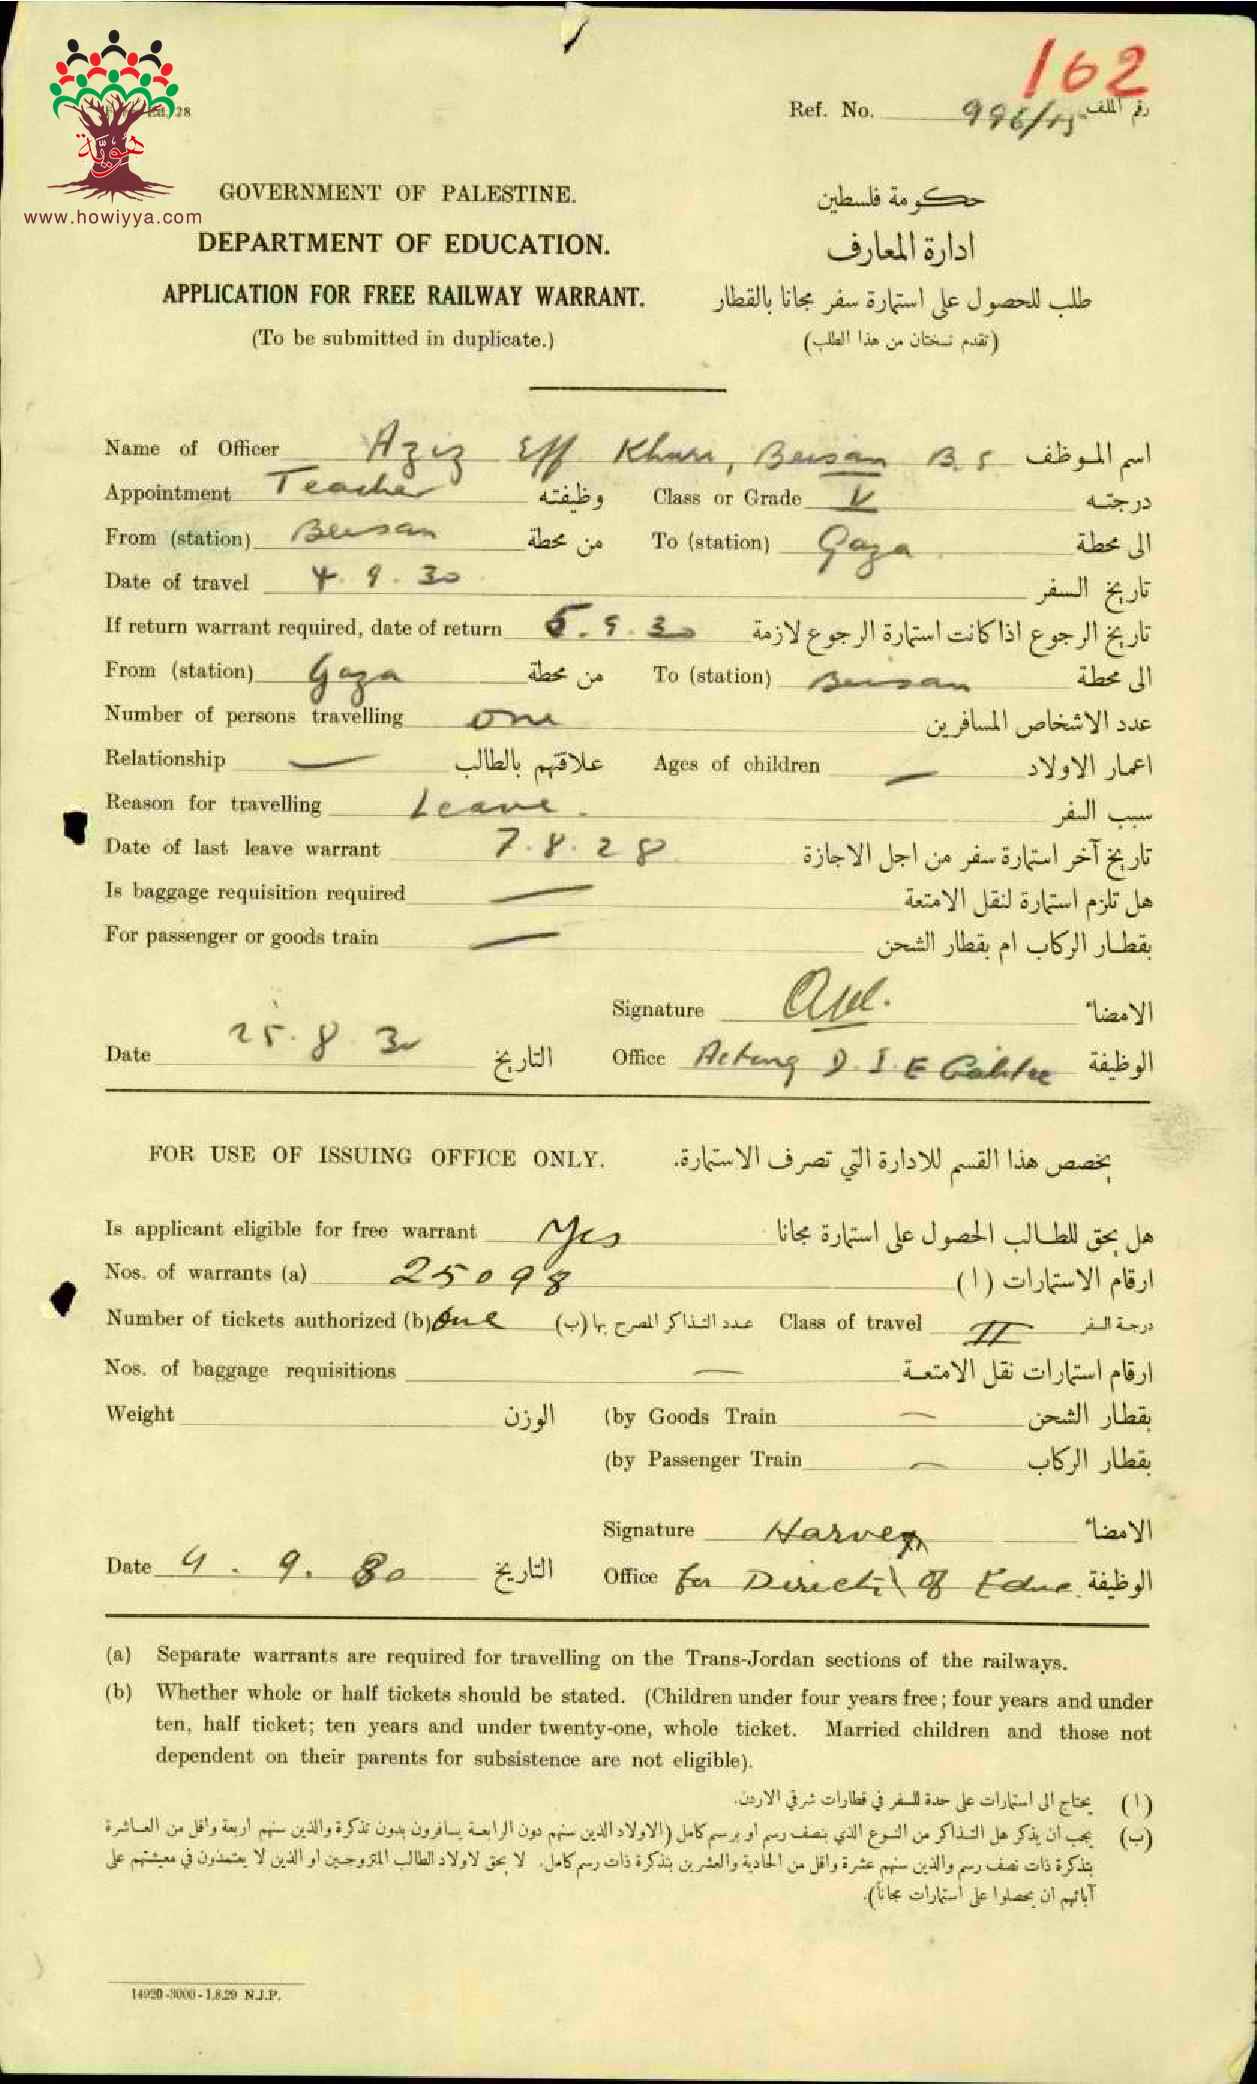 162
هويّة
www.howiyya.com
28
Ref. No. 996/15 رقم الملف
GOVERNMENT OF PALESTINE. حكومة فلسطين
DEPARTMENT OF EDUCATION. ادارة المعارف
APPLICATION FOR FREE RAILWAY WARRANT. طلب للحصول على استمارة سفر مجانا بالقطار
(To be submitted in duplicate.) (تقدم نسختان من هذا الطلب)
Name of Officer Aziz Eff Khuri, Beisan B.S اسم الموظف
Appointment Teacher وظيفته Class or Grade V درجته
From (station) Beisan من محطة To (station) Gaza الى محطة
Date of travel 4.9.30 تاريخ السفر
If return warrant required, date of return 5.9.30 تاريخ الرجوع اذا كانت استمارة الرجوع لازمة
From (station) Gaza من محطة To (station) Beisan الى محطة
Number of persons travelling one عدد الاشخاص المسافرين
Relationship — علاقتهم بالطالب Ages of children — اعمار الاولاد
Reason for travelling Leave. سبب السفر
Date of last leave warrant 7.8.28 تاريخ آخر استمارة سفر من اجل الاجازة
Is baggage requisition required — هل تلزم استمارة لنقل الامتعة
For passenger or goods train — بقطار الركاب ام بقطار الشحن
Signature الامضاء
Date 25.8.30 التاريخ Office Acting D.I.E Galilee الوظيفة
FOR USE OF ISSUING OFFICE ONLY. يخصص هذا القسم للادارة التي تصرف الاستمارة.
Is applicant eligible for free warrant Yes هل يحق للطالب الحصول على استمارة مجانا
Nos. of warrants (a) 25098 ارقام الاستمارات (ا)
Number of tickets authorized (b) One عدد التذاكر المصرح بها (ب) Class of travel II درجة السفر
Nos. of baggage requisitions — ارقام استمارات نقل الامتعة
Weight الوزن (by Goods Train — بقطار الشحن
(by Passenger Train — بقطار الركاب
Signature Harvey الامضاء
Date 4.9.30 التاريخ Office for Director of Educ. الوظيفة
(a) Separate warrants are required for travelling on the Trans-Jordan sections of the railways.
(b) Whether whole or half tickets should be stated. (Children under four years free; four years and under
ten, half ticket; ten years and under twenty-one, whole ticket. Married children and those not
dependent on their parents for subsistence are not eligible).
(ا) يحتاج الى استمارات على حدة للسفر في قطارات شرقي الاردن.
(ب) يجب ان يذكر هل التذاكر من النوع الذي بنصف رسم او برسم كامل (الاولاد الذين سنهم دون الرابعة يسافرون بدون تذكرة والذين سنهم اربعة واقل من العاشرة
بتذكرة ذات نصف رسم والذين سنهم عشرة واقل من الحادية والعشرين بتذكرة ذات رسم كامل. لا يحق لاولاد الطالب المتزوجين او الذين لا يعتمدون في معيشتهم على
آبائهم ان يحصلوا على استمارات مجاناً).
14920-3000-1.8.29 N.J.P.